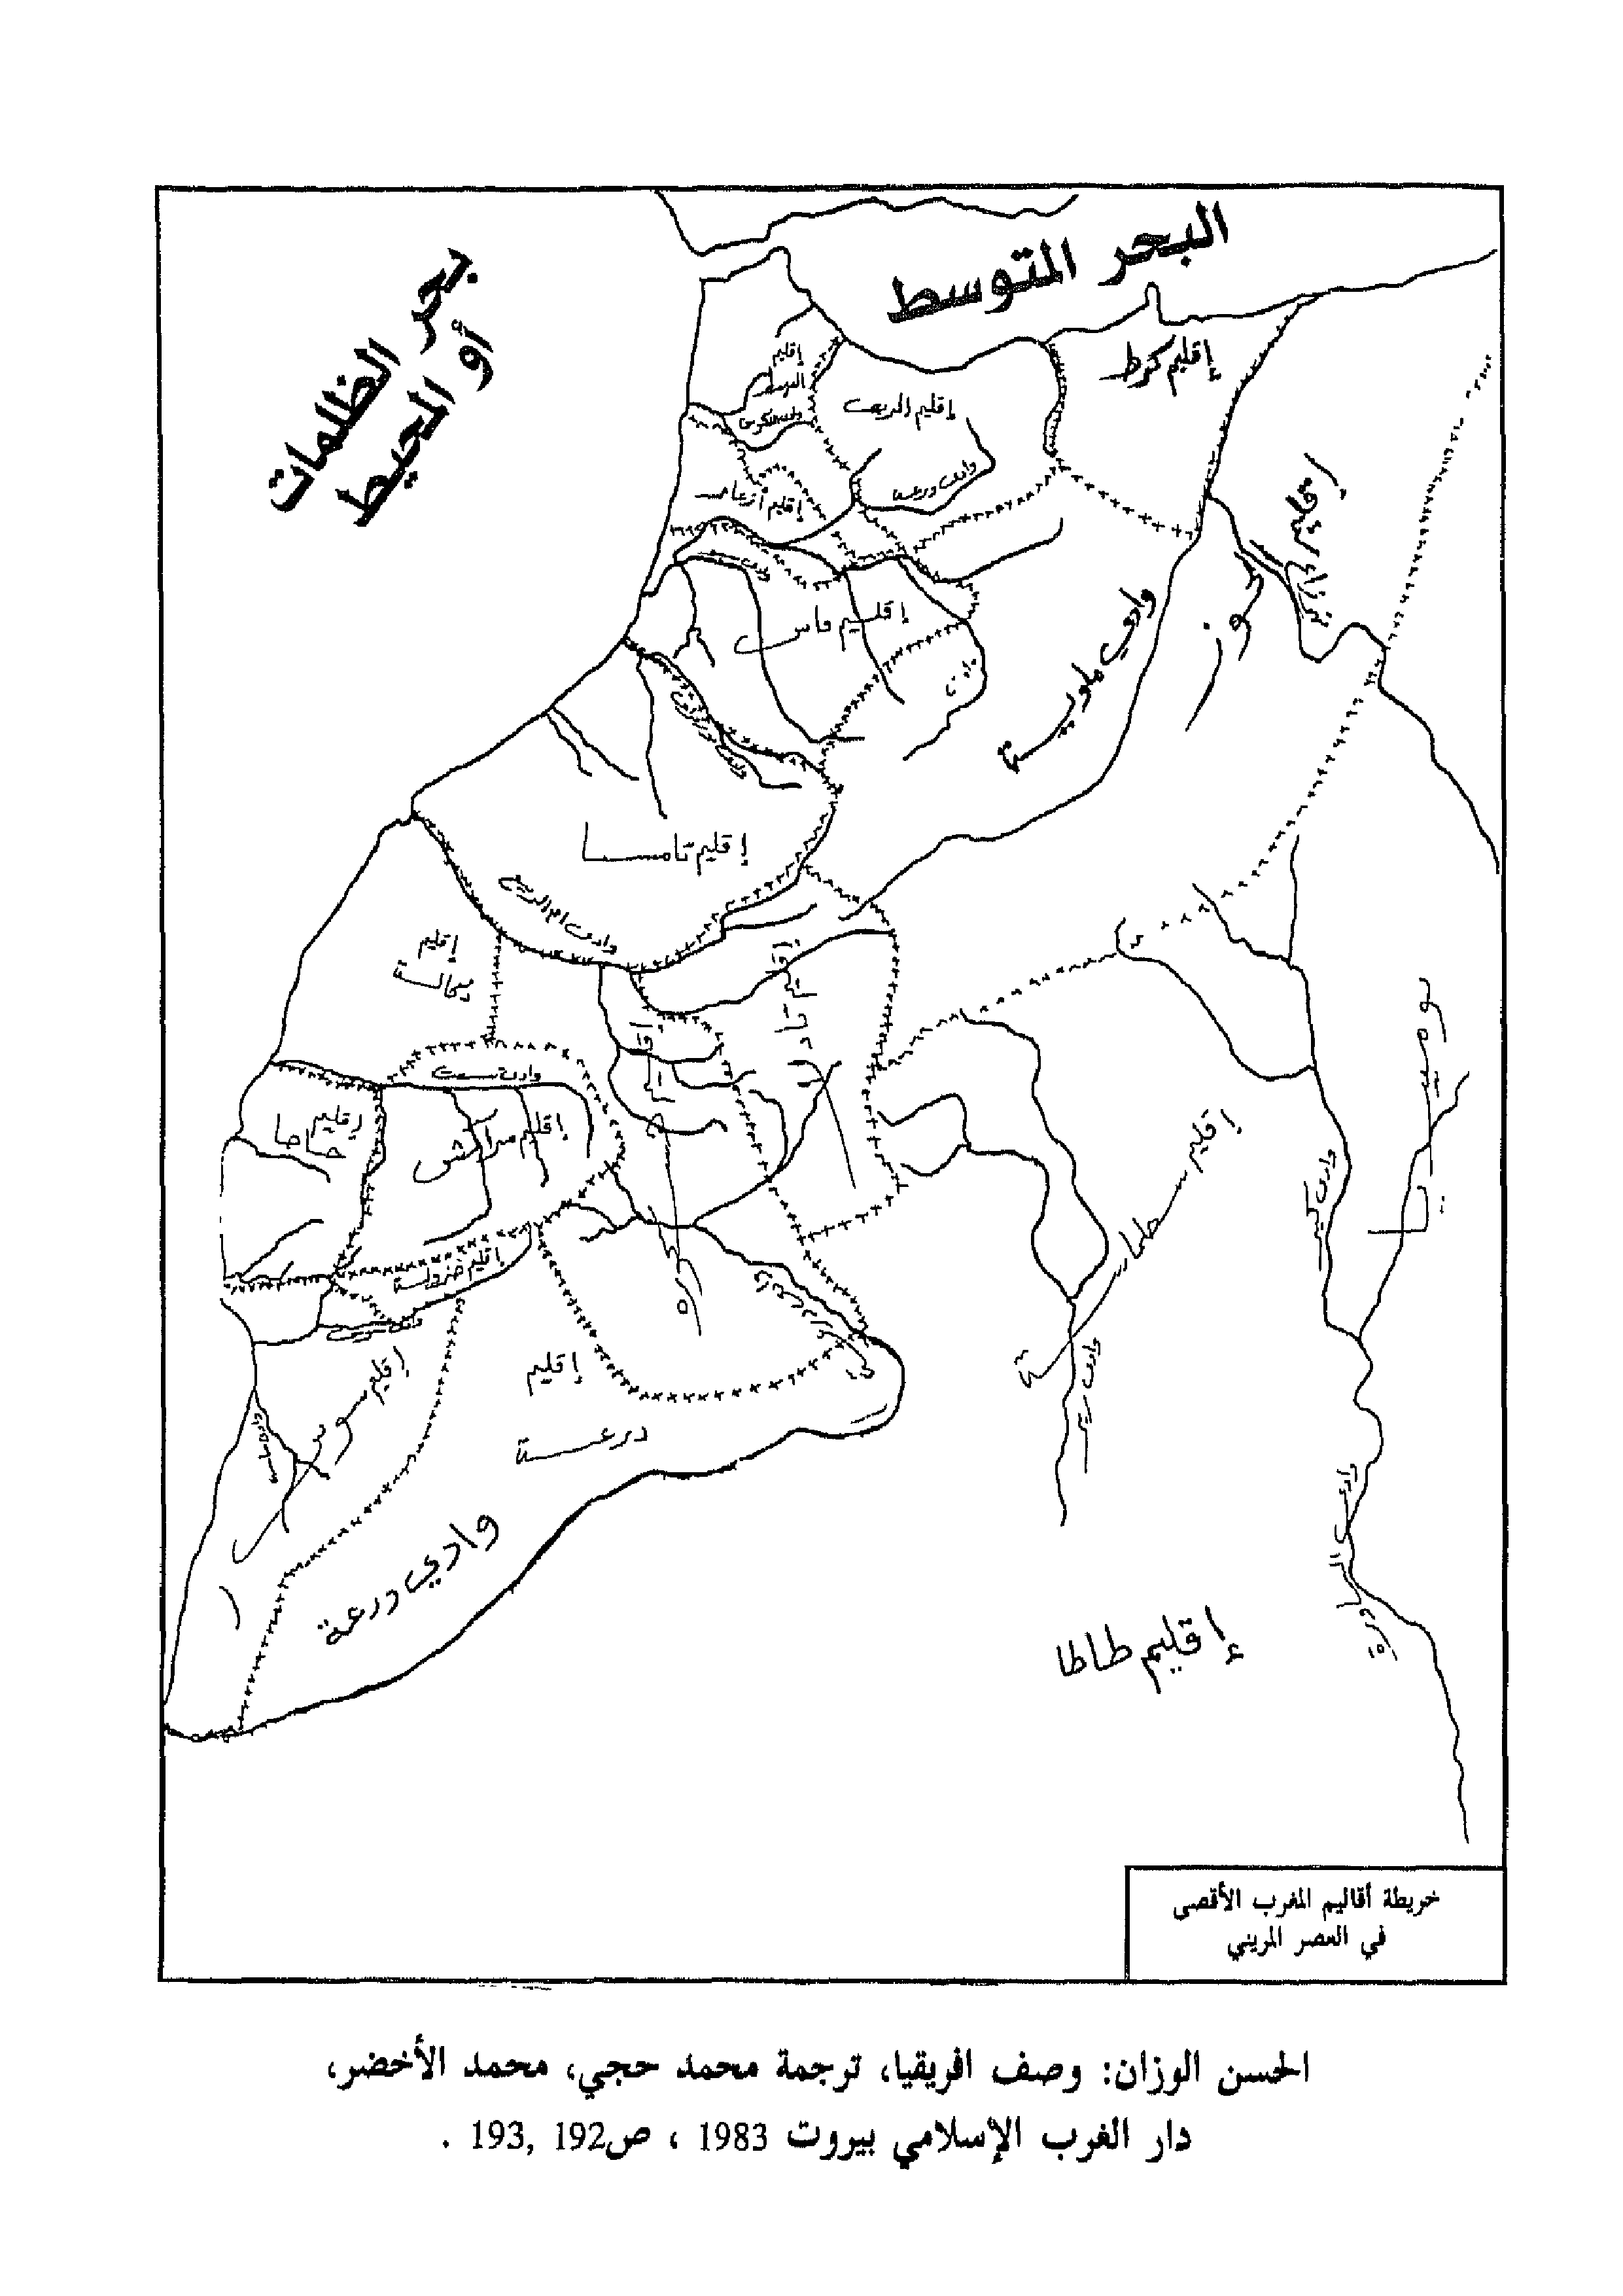 البحر المتوسط
بحر الظلمات
أو المحيط
إقليم كرط
إقليم الريف
إقليم
إقليم أزغار
وادي ورغة
إقليم
إقليم فاس
وادي ملوية
إقليم تامسنا
وادي أم الربيع
إقليم
دكالة
إقليم
حاحا
إقليم مراكش
إقليم
وادي
إقليم
درعة
إقليم
سوس
وادي درعة
وادي
وادي كير
نوميديا
وادي الساورة
إقليم طاطا
خريطة أقاليم المغرب الأقصى
في العصر المريني
الحسن الوزان: وصف افريقيا، ترجمة محمد حجي، محمد الأخضر،
دار الغرب الإسلامي بيروت 1983 ، ص192 ,193 .